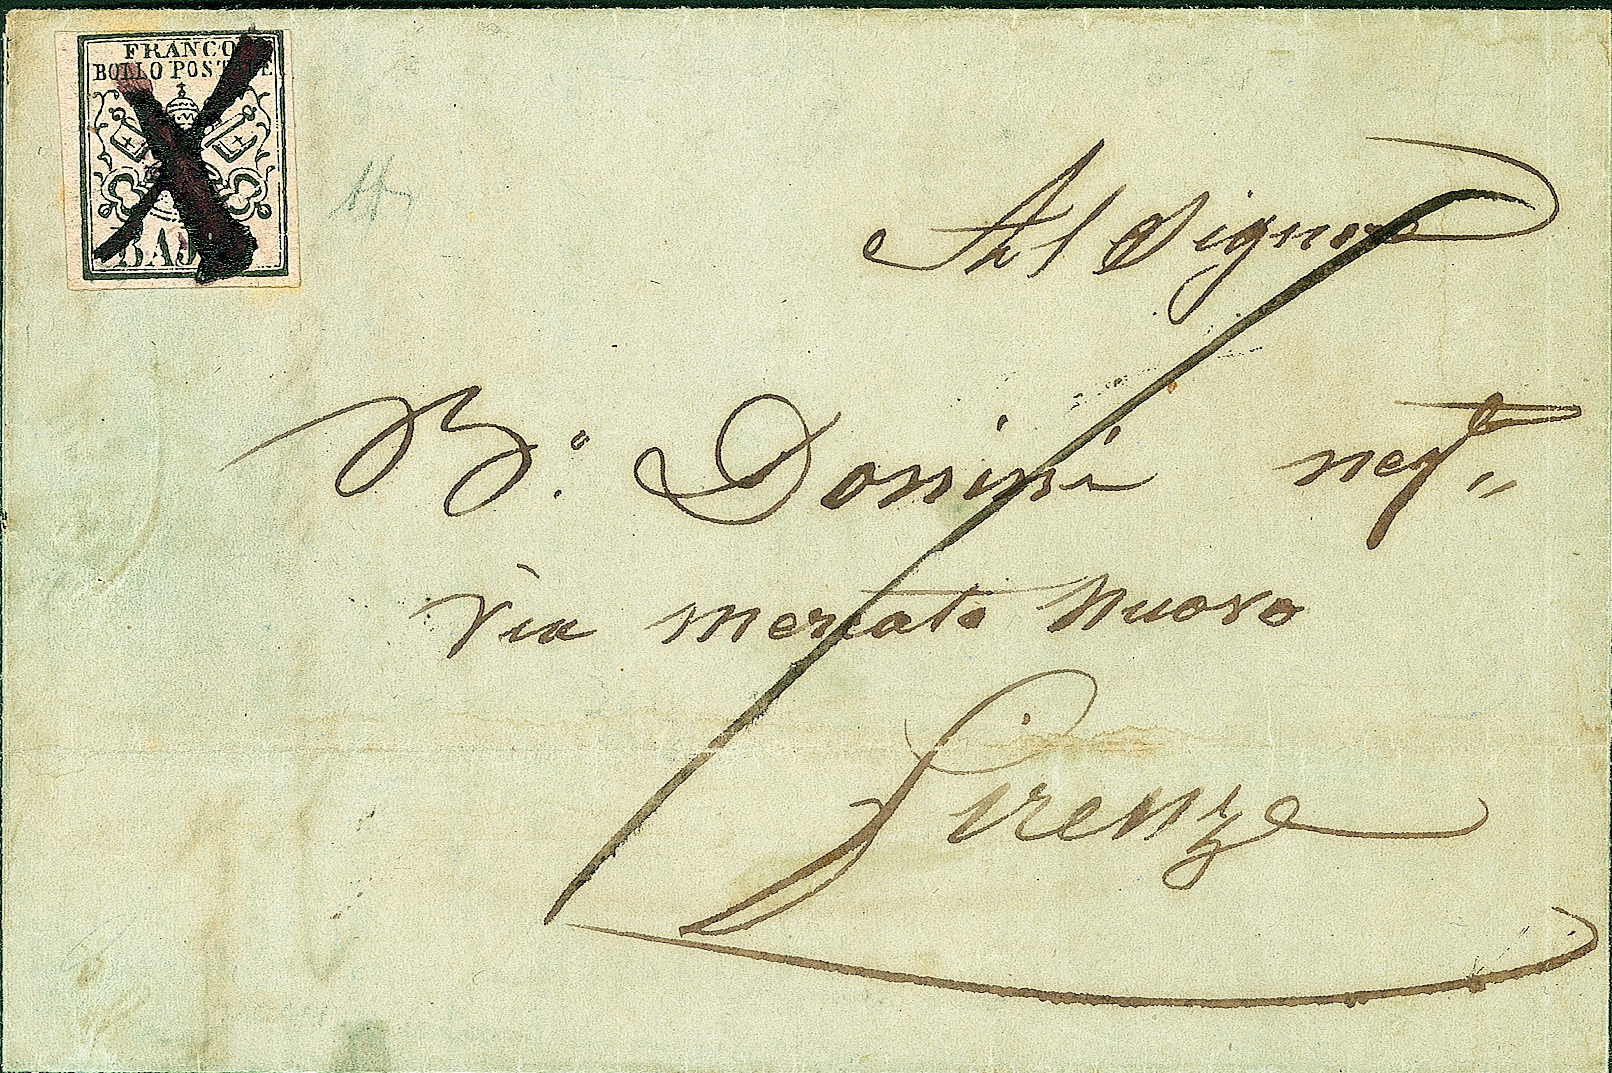 FRANCO
BOLLO POSTALE
BAJ
Al Signore
B.° Donini negt„
Via Mercato Nuovo
Firenze